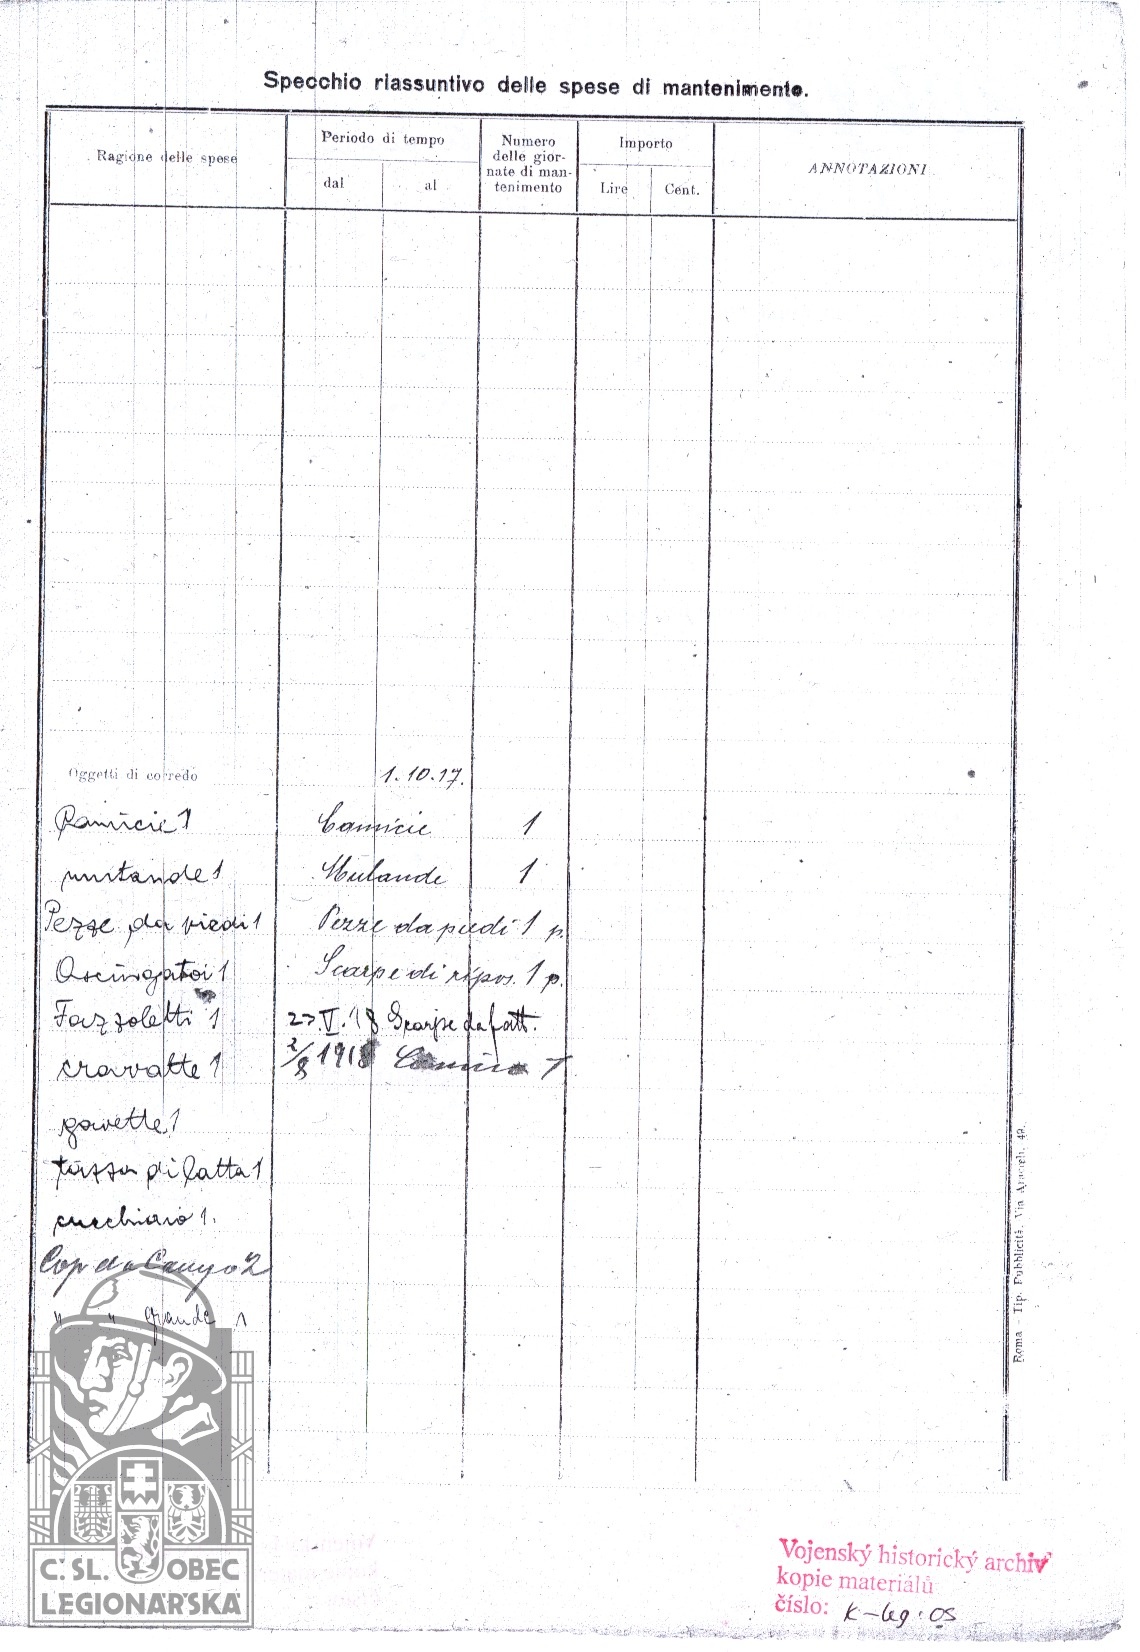 Specchio riassuntivo delle spese di mantenimento.
Ragione delle spese
Periodo di tempo
dal
al
Numero
delle gior-
nate di man-
tenimento
Importo
Lire
Cent.
ANNOTAZIONI
Oggetti di corredo
1.10.17.
Camicie 1
Camicie 1
mutande 1
Mutande 1
Pezze da piedi 1
Pezze da piedi 1 p.
Asciugatoi 1
Scarpe di ripos. 1 p.
Fazzoletti 1
27.V.18 Scarpe da fatt.
cravatte 1
2/8 1918 1
gavette 1
tazza di latta 1
cucchiaio 1.
2
" " grande 1
Roma - Tip. Pubblicità, Via 49.
Č.SL. OBEC
LEGIONÁŘSKÁ
Vojenský historický archiv
kopie materiálů
číslo: K-leg. OS